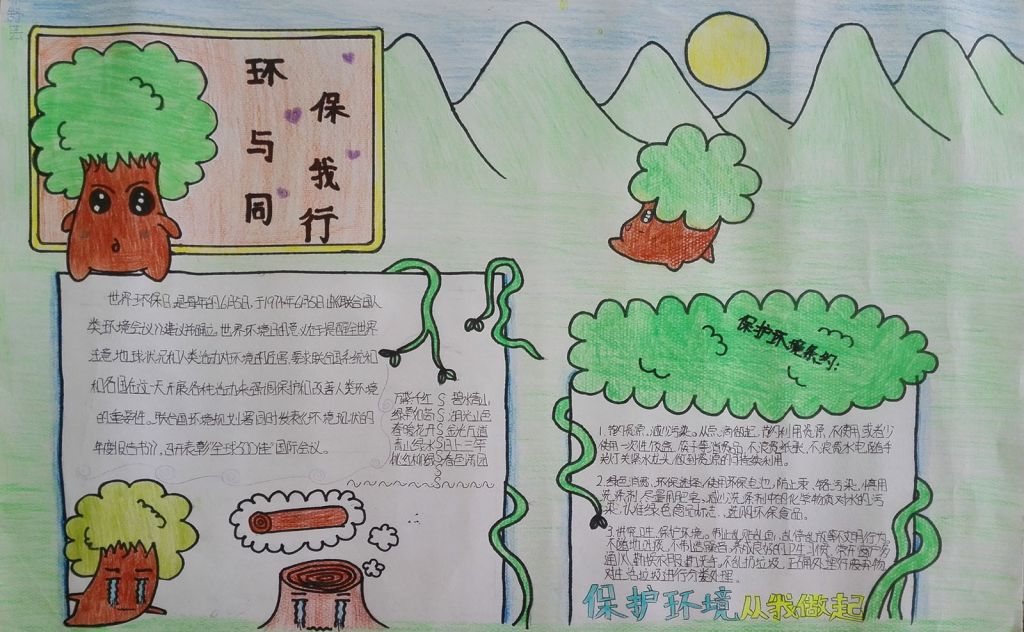 环保
与我
同行
世界环保日,是每年的6月5日,于1972年6月5日由《联合国人
类环境会议》建议并确立。世界环境日的意义在于提醒全世界
注意地球状况和人类活动对环境的危害。要求联合国系统和
和各国在这一天开展各种活动来强调保护和改善人类环境
的重要性。联合国环境规划署同时发表《环境现状的
年度报告书》,召开表彰"全球500佳"国际会议。
万紫千红 碧水青山
绿影婆 湖光山色
春暖花开 金光万道
青山绿水
桃红柳绿 春色满园
保护环境条约:
1.节约资源、减少污染。从点滴做起,节约利用资源,不使用或者少
使用一次性饭盒、筷子等消费品,不浪费纸张,不浪费水电,随手
关灯关紧水龙头,做到资源的可持续利用。
2.绿色消费,环保选择,使用环保电池,防止汞、镉污染,慎用
洗涤剂,尽量用肥皂,减少洗涤剂中的化学物质对水的污
染,认准绿色商品标志,选购环保食品。
3.讲究卫生、保护环境。制止乱贴乱画、乱停乱放等不文明行为
不随地吐痰,不制造噪音,养成良好的卫生习惯,常开窗户多
通风,勤换衣服勤洗手,不乱扔垃圾,正确处理好废弃物
对生活垃圾进行分类处理。
保护环境 从我做起